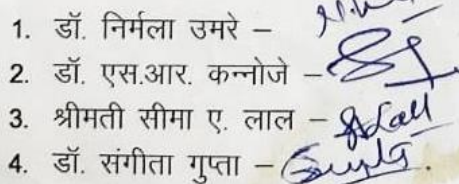 1. डॉ. निर्मला उमरे –
2. डॉ. एस.आर. कन्नोजे –
3. श्रीमती सीमा ए. लाल – SALall
4. डॉ. संगीता गुप्ता – Gupta